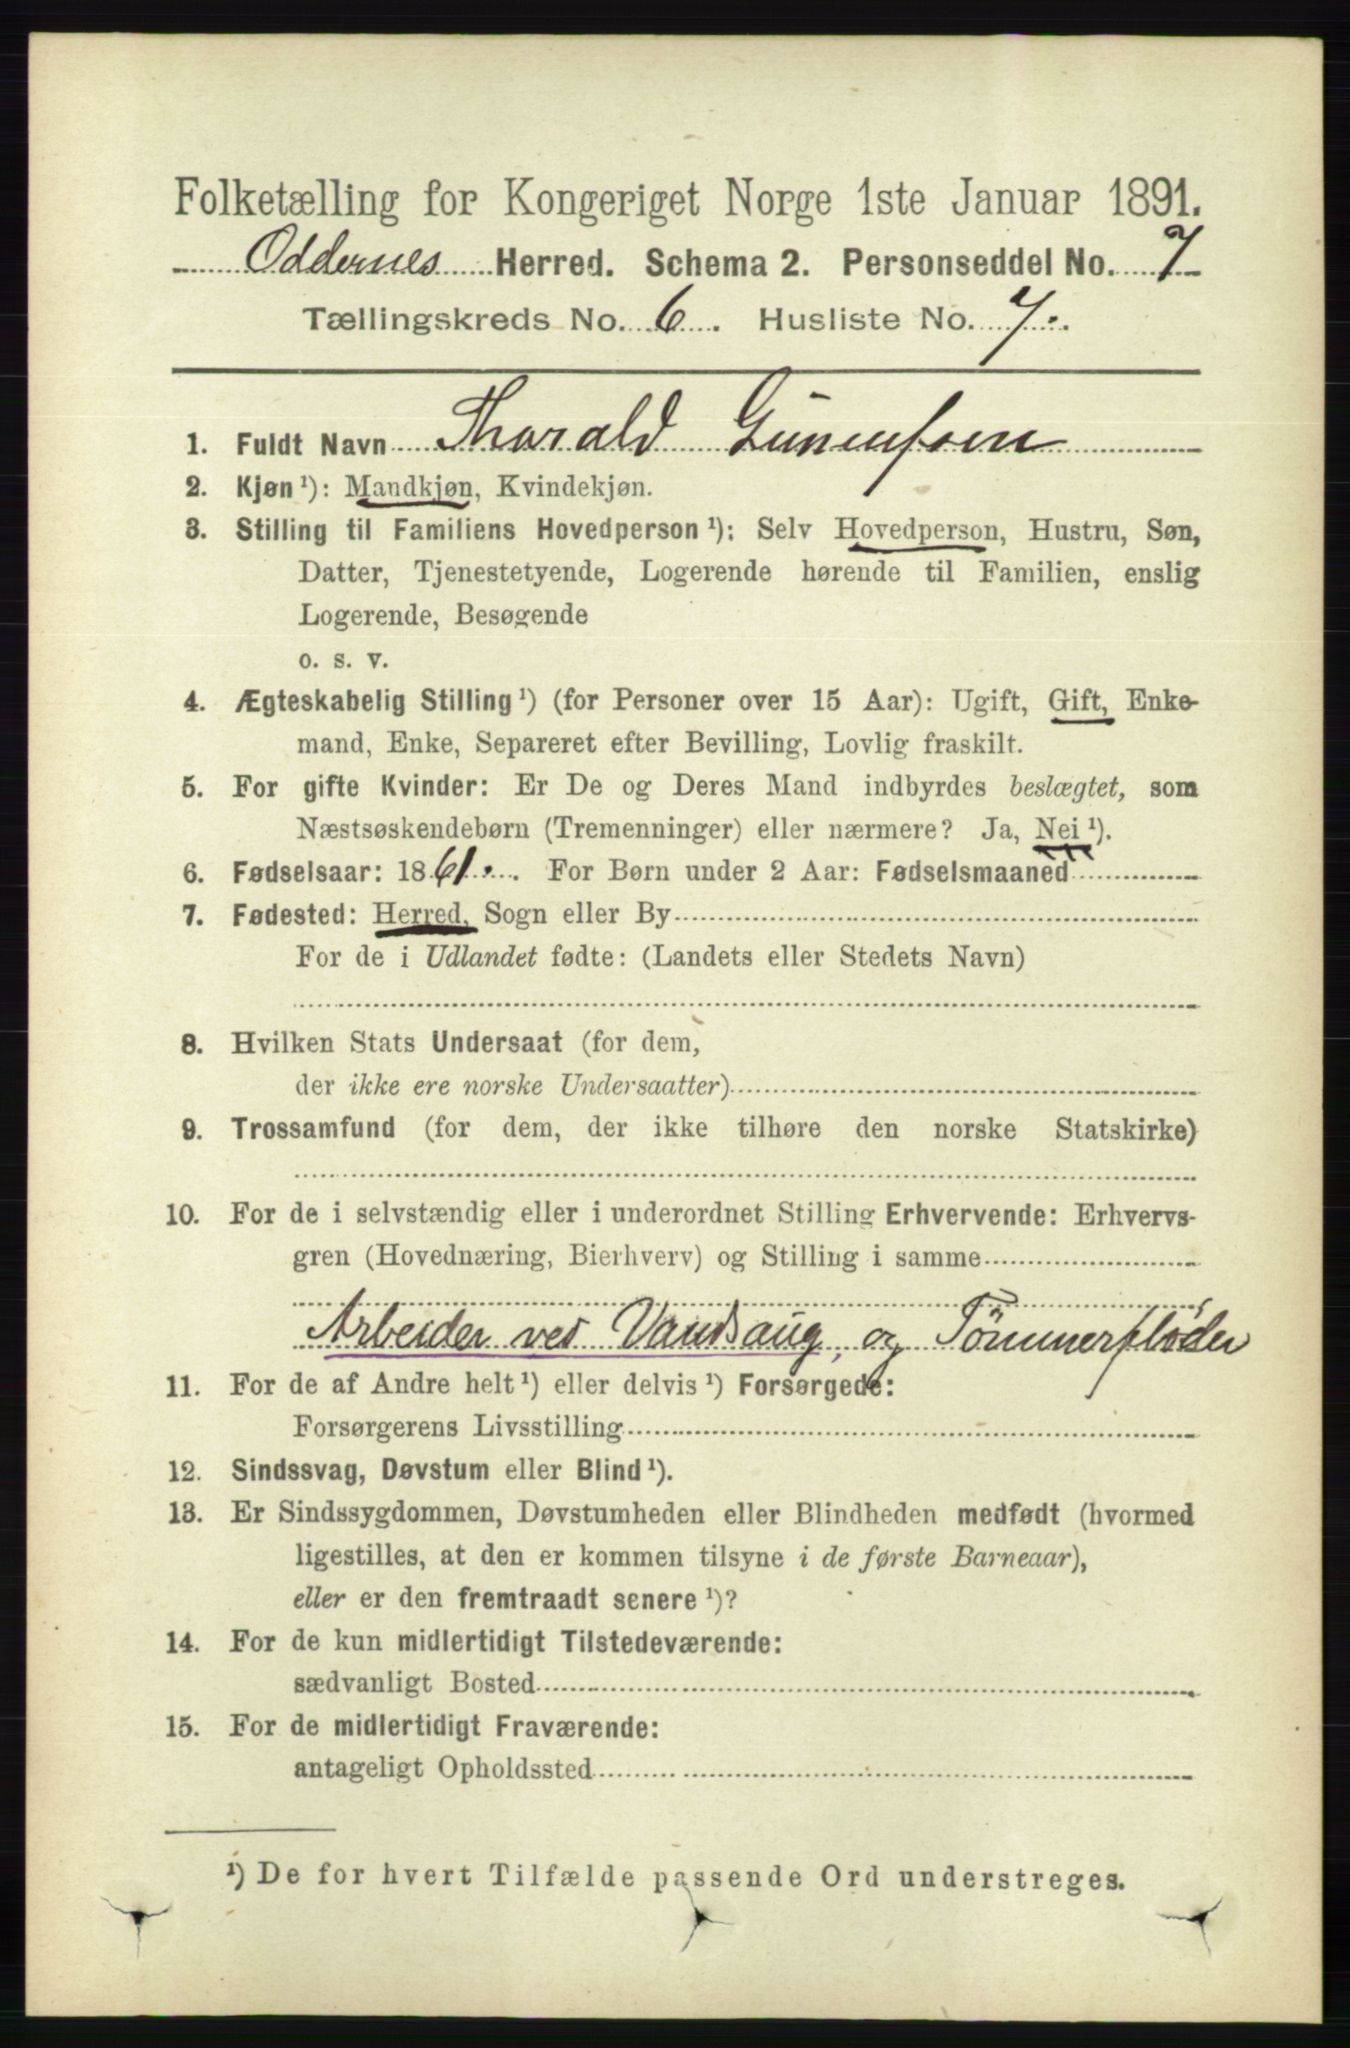 Folketælling for Kongeriget Norge 1ste Januar 1891.
Oddernes Herred. Schema 2. Personseddel No. 7
Tællingskreds No. 6. Husliste No. 7.
1. Fuldt Navn Tharald Gunensen
2. Kjøn¹): Mandkjøn, Kvindekjøn.
3. Stilling til Familiens Hovedperson¹): Selv Hovedperson, Hustru, Søn,
Datter, Tjenestetyende, Logerende hørende til Familien, enslig
Logerende, Besøgende
o. s. v.
4. Ægteskabelig Stilling¹) (for Personer over 15 Aar): Ugift, Gift, Enke-
mand, Enke, Separeret efter Bevilling, Lovlig fraskilt.
5. For gifte Kvinder: Er De og Deres Mand indbyrdes beslægtet, som
Næstsøskendebørn (Tremenninger) eller nærmere? Ja, Nei¹).
6. Fødselsaar: 1861. For Børn under 2 Aar: Fødselsmaaned
7. Fødested: Herred, Sogn eller By
For de i Udlandet fødte: (Landets eller Stedets Navn)
8. Hvilken Stats Undersaat (for dem,
der ikke ere norske Undersaatter)
9. Trossamfund (for dem, der ikke tilhøre den norske Statskirke)
10. For de i selvstændig eller i underordnet Stilling Erhvervende: Erhvervs-
gren (Hovednæring, Bierhverv) og Stilling i samme
Arbeider ved Vandsaug, og Tömmerflöder
11. For de af Andre helt¹) eller delvis¹) Forsørgede:
Forsørgerens Livsstilling
12. Sindssvag, Døvstum eller Blind¹).
13. Er Sindssygdommen, Døvstumheden eller Blindheden medfødt (hvormed
ligestilles, at den er kommen tilsyne i de første Barneaar),
eller er den fremtraadt senere¹)?
14. For de kun midlertidigt Tilstedeværende:
sædvanligt Bosted
15. For de midlertidigt Fraværende:
antageligt Opholdssted
¹) De for hvert Tilfælde passende Ord understreges.